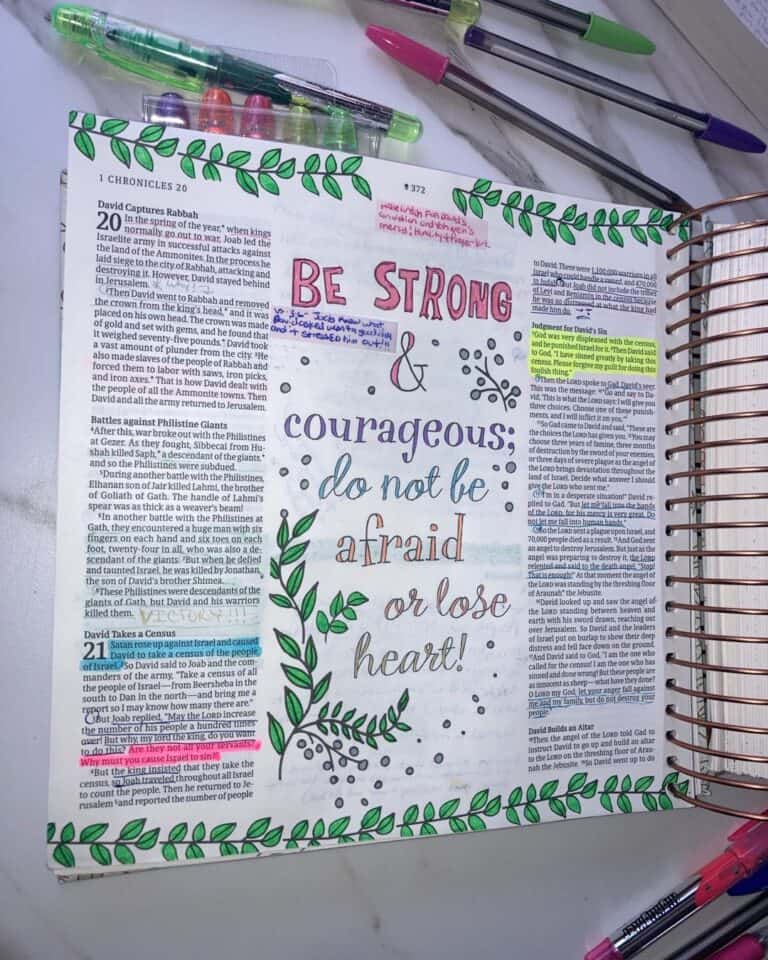 1 CHRONICLES 20
372
David Captures Rabbah
20 In the spring of the year,* when kings
normally go out to war, Joab led the
Israelite army in successful attacks against
the land of the Ammonites. In the process he
laid siege to the city of Rabbah, attacking and
destroying it. However, David stayed behind
in Jerusalem.
2Then David went to Rabbah and removed
the crown from the king's head,* and it was
placed on his own head. The crown was made
of gold and set with gems, and he found that
it weighed seventy-five pounds.* David took
a vast amount of plunder from the city. 3He
also made slaves of the people of Rabbah and
forced them to labor with saws, iron picks,
and iron axes.* That is how David dealt with
the people of all the Ammonite towns. Then
David and all the army returned to Jerusalem.
Battles against Philistine Giants
4After this, war broke out with the Philistines
at Gezer. As they fought, Sibbecai from Hu-
shah killed Saph,* a descendant of the giants,*
and so the Philistines were subdued.
5During another battle with the Philistines,
Elhanan son of Jair killed Lahmi, the brother
of Goliath of Gath. The handle of Lahmi's
spear was as thick as a weaver's beam!
6In another battle with the Philistines at
Gath, they encountered a huge man with six
fingers on each hand and six toes on each
foot, twenty-four in all, who was also a de-
scendant of the giants. 7But when he defied
and taunted Israel, he was killed by Jonathan,
the son of David's brother Shimea.
8These Philistines were descendants of the
giants of Gath, but David and his warriors
killed them. VICTORY!!!
David Takes a Census
21 Satan rose up against Israel and caused
David to take a census of the people
of Israel. 2So David said to Joab and the com-
manders of the army, "Take a census of all
the people of Israel—from Beersheba in the
south to Dan in the north—and bring me a
report so I may know how many there are."
3But Joab replied, "May the LORD increase
the number of his people a hundred times
over! But why, my lord the king, do you want
to do this? Are they not all your servants?
Why must you cause Israel to sin?"
4But the king insisted that they take the
census, so Joab traveled throughout all Israel
to count the people. Then he returned to Je-
rusalem 5and reported the number of people
BE STRONG
&
courageous;
do not be
afraid
or lose
heart!
to David. There were 1,100,000 warriors in all
Israel who could handle a sword, and 470,000
in Judah. 6But Joab did not include the tribes
of Levi and Benjamin in the census because
he was so distressed at what the king had
made him do.
Judgment for David's Sin
7God was very displeased with the census,
and he punished Israel for it. 8Then David said
to God, "I have sinned greatly by taking this
census. Please forgive my guilt for doing this
foolish thing."
9Then the LORD spoke to Gad, David's seer.
This was the message: 10"Go and say to Da-
vid, 'This is what the LORD says: I will give you
three choices. Choose one of these punish-
ments, and I will inflict it on you.'"
11So Gad came to David and said, "These are
the choices the LORD has given you. 12You may
choose three years of famine, three months
of destruction by the sword of your enemies,
or three days of severe plague as the angel of
the LORD brings devastation throughout the
land of Israel. Decide what answer I should
give the LORD who sent me."
13"I'm in a desperate situation!" David re-
plied to Gad. "But let me fall into the hands
of the LORD, for his mercy is very great. Do
not let me fall into human hands."
14So the LORD sent a plague upon Israel, and
70,000 people died as a result. 15And God sent
an angel to destroy Jerusalem. But just as the
angel was preparing to destroy it, the LORD
relented and said to the death angel, "Stop!
That is enough!" At that moment the angel of
the LORD was standing by the threshing floor
of Araunah* the Jebusite.
16David looked up and saw the angel of
the LORD standing between heaven and
earth with his sword drawn, reaching out
over Jerusalem. So David and the leaders
of Israel put on burlap to show their deep
distress and fell face down on the ground.
17And David said to God, "I am the one who
called for the census! I am the one who has
sinned and done wrong! But these people are
as innocent as sheep—what have they done?
O LORD my God, let your anger fall against
me and my family, but do not destroy your
people."
David Builds an Altar
18Then the angel of the LORD told Gad to
instruct David to go up and build an altar
to the LORD on the threshing floor of Arau-
nah the Jebusite. 19So David went up to do